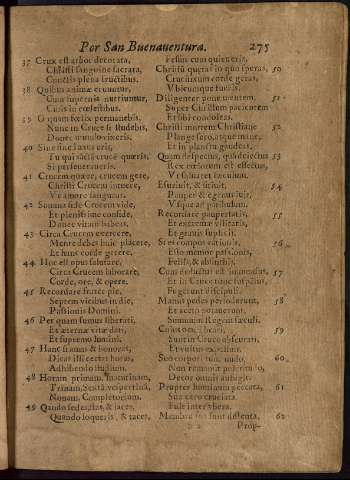 Por San Buenaventura. 275
37 Crux est arbor decorata,
Christi sanguine sacrata,
Cunctis plena fructibus.
38 Quibus animæ eruuntur,
Cum supernis nutriuntur,
Cibis in cœlestibus.
39 O quam fœlix permanebis,
Nunc in Cruce si studebis,
Donec mundo vixeris.
40 Sine fine lætaberis,
Tu qui sacra cruce quæris,
Si perseveraveris.
41 Crucem quære, crucem gere,
Christi Crucem intuere,
Ut amore langueas.
42 Semper in Cruce vide,
Et pleniſsime confide,
Donec vitam habeas.
43 Circa Crucem exercere,
Mente debes huic placere,
Et hanc corde gerere.
44 Hoc est opus salutare,
Circa Crucem laborare,
Corde, ore, & opere.
45 Recordare frater pie,
Septem vicibus in die,
Passionis Domini.
46 Per quam sumus liberati,
Et æternæ vitæ dati,
Et supremo lumini.
47 Hanc si amas & honoras,
Dicas illi certas horas,
Adhibendo studium.
48 Horam primam, matutinam,
Trinam, Sextã vespertinã,
Nonam, Completorium.
49 Quando sedes, stas, & iaces,
Quando loqueris, & taces,
Fessus cum quieveris.
Christũ quæras in quo speras, 50
Crucifixum corde geras,
Ubicumque fueris.
Diligenter pone mentem, 51
Super Christum patientem
Et sibi condoleas.
Christi mortem Christiane 52
Plange sero, atque mane,
Et in planctu gaudeas.
Quam despectus, quã deiectus 53
Rex cœlorum est effectus,
Ut salvaret sæculum.
Esurivit, & sitivit, 54
Pauper & egenus ivit,
Usque ad patibulum.
Recordare paupertatis, 55
Et extremæ vilitatis,
Et gravis supplicij.
Si es compos rationis, 56
Esto memor passionis,
Fellis, & absinthij.
Cum deductus est immensus, 57
Et in Cruce tunc suspensus,
Fugerunt discipuli.
Manus pedes perfoderunt, 58
Et aceto potaverunt
Summum Regem sæculi.
Cuius oculi beati, 59
Sunt in Cruce obscurati,
Et vultus expalluit.
Suo corpori tunc nudo, 60
Non remansit pulchritudo,
Decor omnis aufugit.
Propter hominum peccata, 61
Sua caro cruciata
Fuit inter verbera.
Membra sua sunt distenta, 62
Prop-